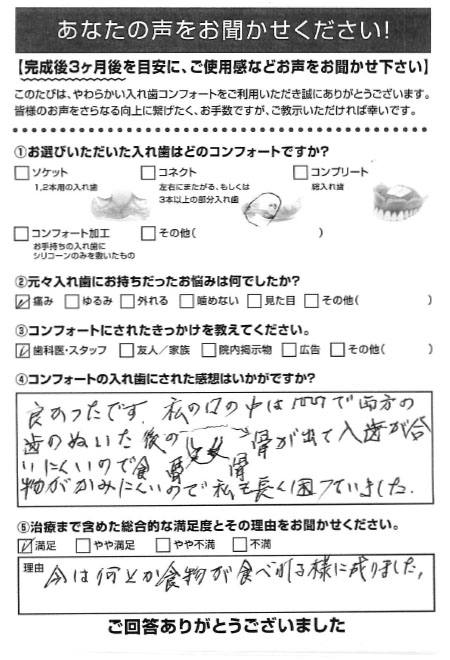 あなたの声をお聞かせください!
【完成後3ヶ月後を目安に、ご使用感などお声をお聞かせ下さい】
このたびは、やわらかい入れ歯コンフォートをご利用いただき誠にありがとうございます。
皆様のお声をさらなる向上に繋げたく、お手数ですが、ご教示いただければ幸いです。
①お選びいただいた入れ歯はどのコンフォートですか?
□ソケット □コネクト □コンプリート
1,2本用の入れ歯 左右にまたがる、もしくは 総入れ歯
3本以上の部分入れ歯
□コンフォート加工 □その他( )
お手持ちの入れ歯に
シリコーンのみを敷いたもの
②元々入れ歯にお持ちだったお悩みは何でしたか?
☑痛み □ゆるみ □外れる □噛めない □見た目 □その他( )
③コンフォートにされたきっかけを教えてください。
☑歯科医・スタッフ □友人/家族 □院内掲示物 □広告 □その他( )
④コンフォートの入れ歯にされた感想はいかがですか?
良かったです。私の口の中は で両方の
歯のぬいた後の 骨が出て入歯が合
いにくいので食
物がかみにくいので私も長く困っていました。
⑤治療まで含めた総合的な満足度とその理由をお聞かせください。
☑満足 □やや満足 □やや不満 □不満
理由 今は何とか食物が食べれる様に成りました。
ご回答ありがとうございました